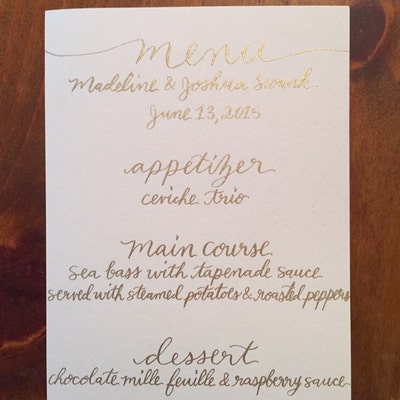 menu
Madeline & Joshua Swank
June 13, 2015
appetizer
ceviche trio
Main course
sea bass with tapenade sauce
served with steamed potatoes & roasted peppers
dessert
chocolate mille feuille & raspberry sauce